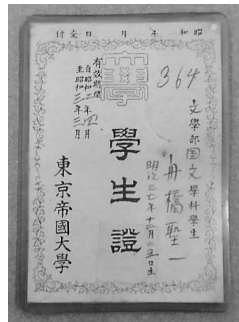 昭和 年 月 日交付
364
文學部国文學科學生
舟橋聖一
明治三七年十二月二五日生
學生證
有效期間
自昭和二年四月
至昭和三年三月
東京帝國大學